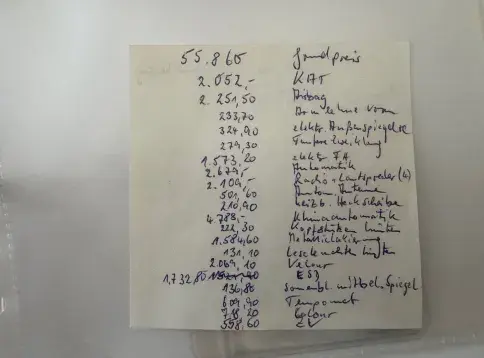 55.860 Grundpreis
2.052,- KAT
2.251,50 Airbag
233,70 Armlehne vorn
324,90 elektr. Außenspiegel re
279,30
1.573,20 elektr. FH
2.679,- Automatik
2.109,- Radio + Lautsprecher (4)
501,60 Autom. Antenne
210,90 heizb. Heckscheibe
4.788,- Klimaautomatik
222,30 Kopfstützen hinten
1.584,60 Metallic
131,10 Leseleuchten hinten
2.069,10 Velour
1.732,80 ESD
136,80 Sonnenbl. mit bel. Spiegel
609,90 Tempomat
718,20
558,60 ZV